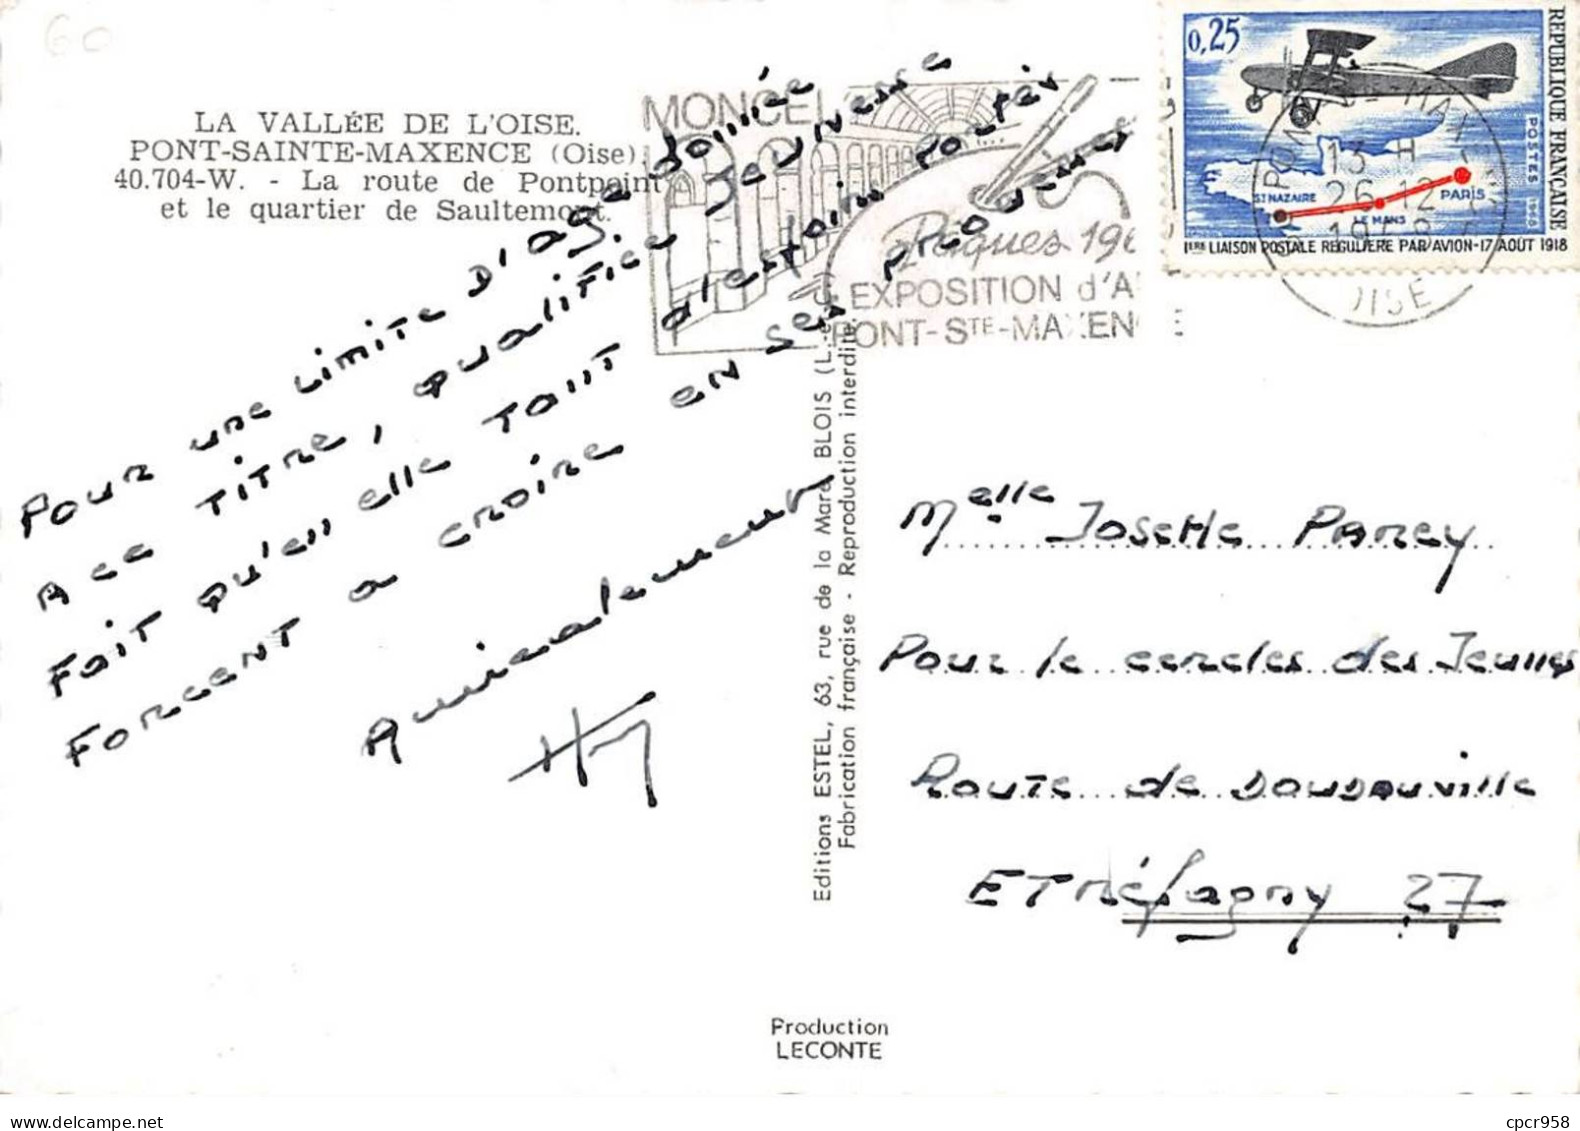 60
LA VALLÉE DE L'OISE.
PONT-SAINTE-MAXENCE (Oise)
40.704-W. - La route de Pontpoint
et le quartier de Saultemont.
MONCEL
Pâques 196
EXPOSITION d'A
PONT-STE-MAXENCE
0,25
REPUBLIQUE FRANÇAISE
POSTES 1968
ST NAZAIRE
LE MANS
PARIS
1ERE LIAISON POSTALE REGULIERE PAR AVION-17 AOÛT 1918
13 H
26-12
1968
OISE
Pour une limite d'age donnée
A ce titre, qualifiée Jeunesse
Fait qu'en elle tout
Forcent a croire en ses
Amicalement
Editions ESTEL, 63, rue de la Mare BLOIS (L.-
Fabrication française - Reproduction interdite.
Melle Josette Parey
Pour le cercles des Jeunes
Route de Doudouville
Etrépagny 27
Production
LECONTE
cpcr958